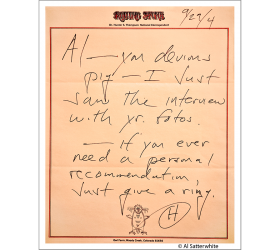 ROLLING STONE
9/29/4
Al — you devious
pig — I just
saw the interview
with yr. fotos.
— if you ever
need a personal
recommendation,
Just give a ring.
H
Owl Farm, Woody Creek, Colorado 81656
© Al Satterwhite